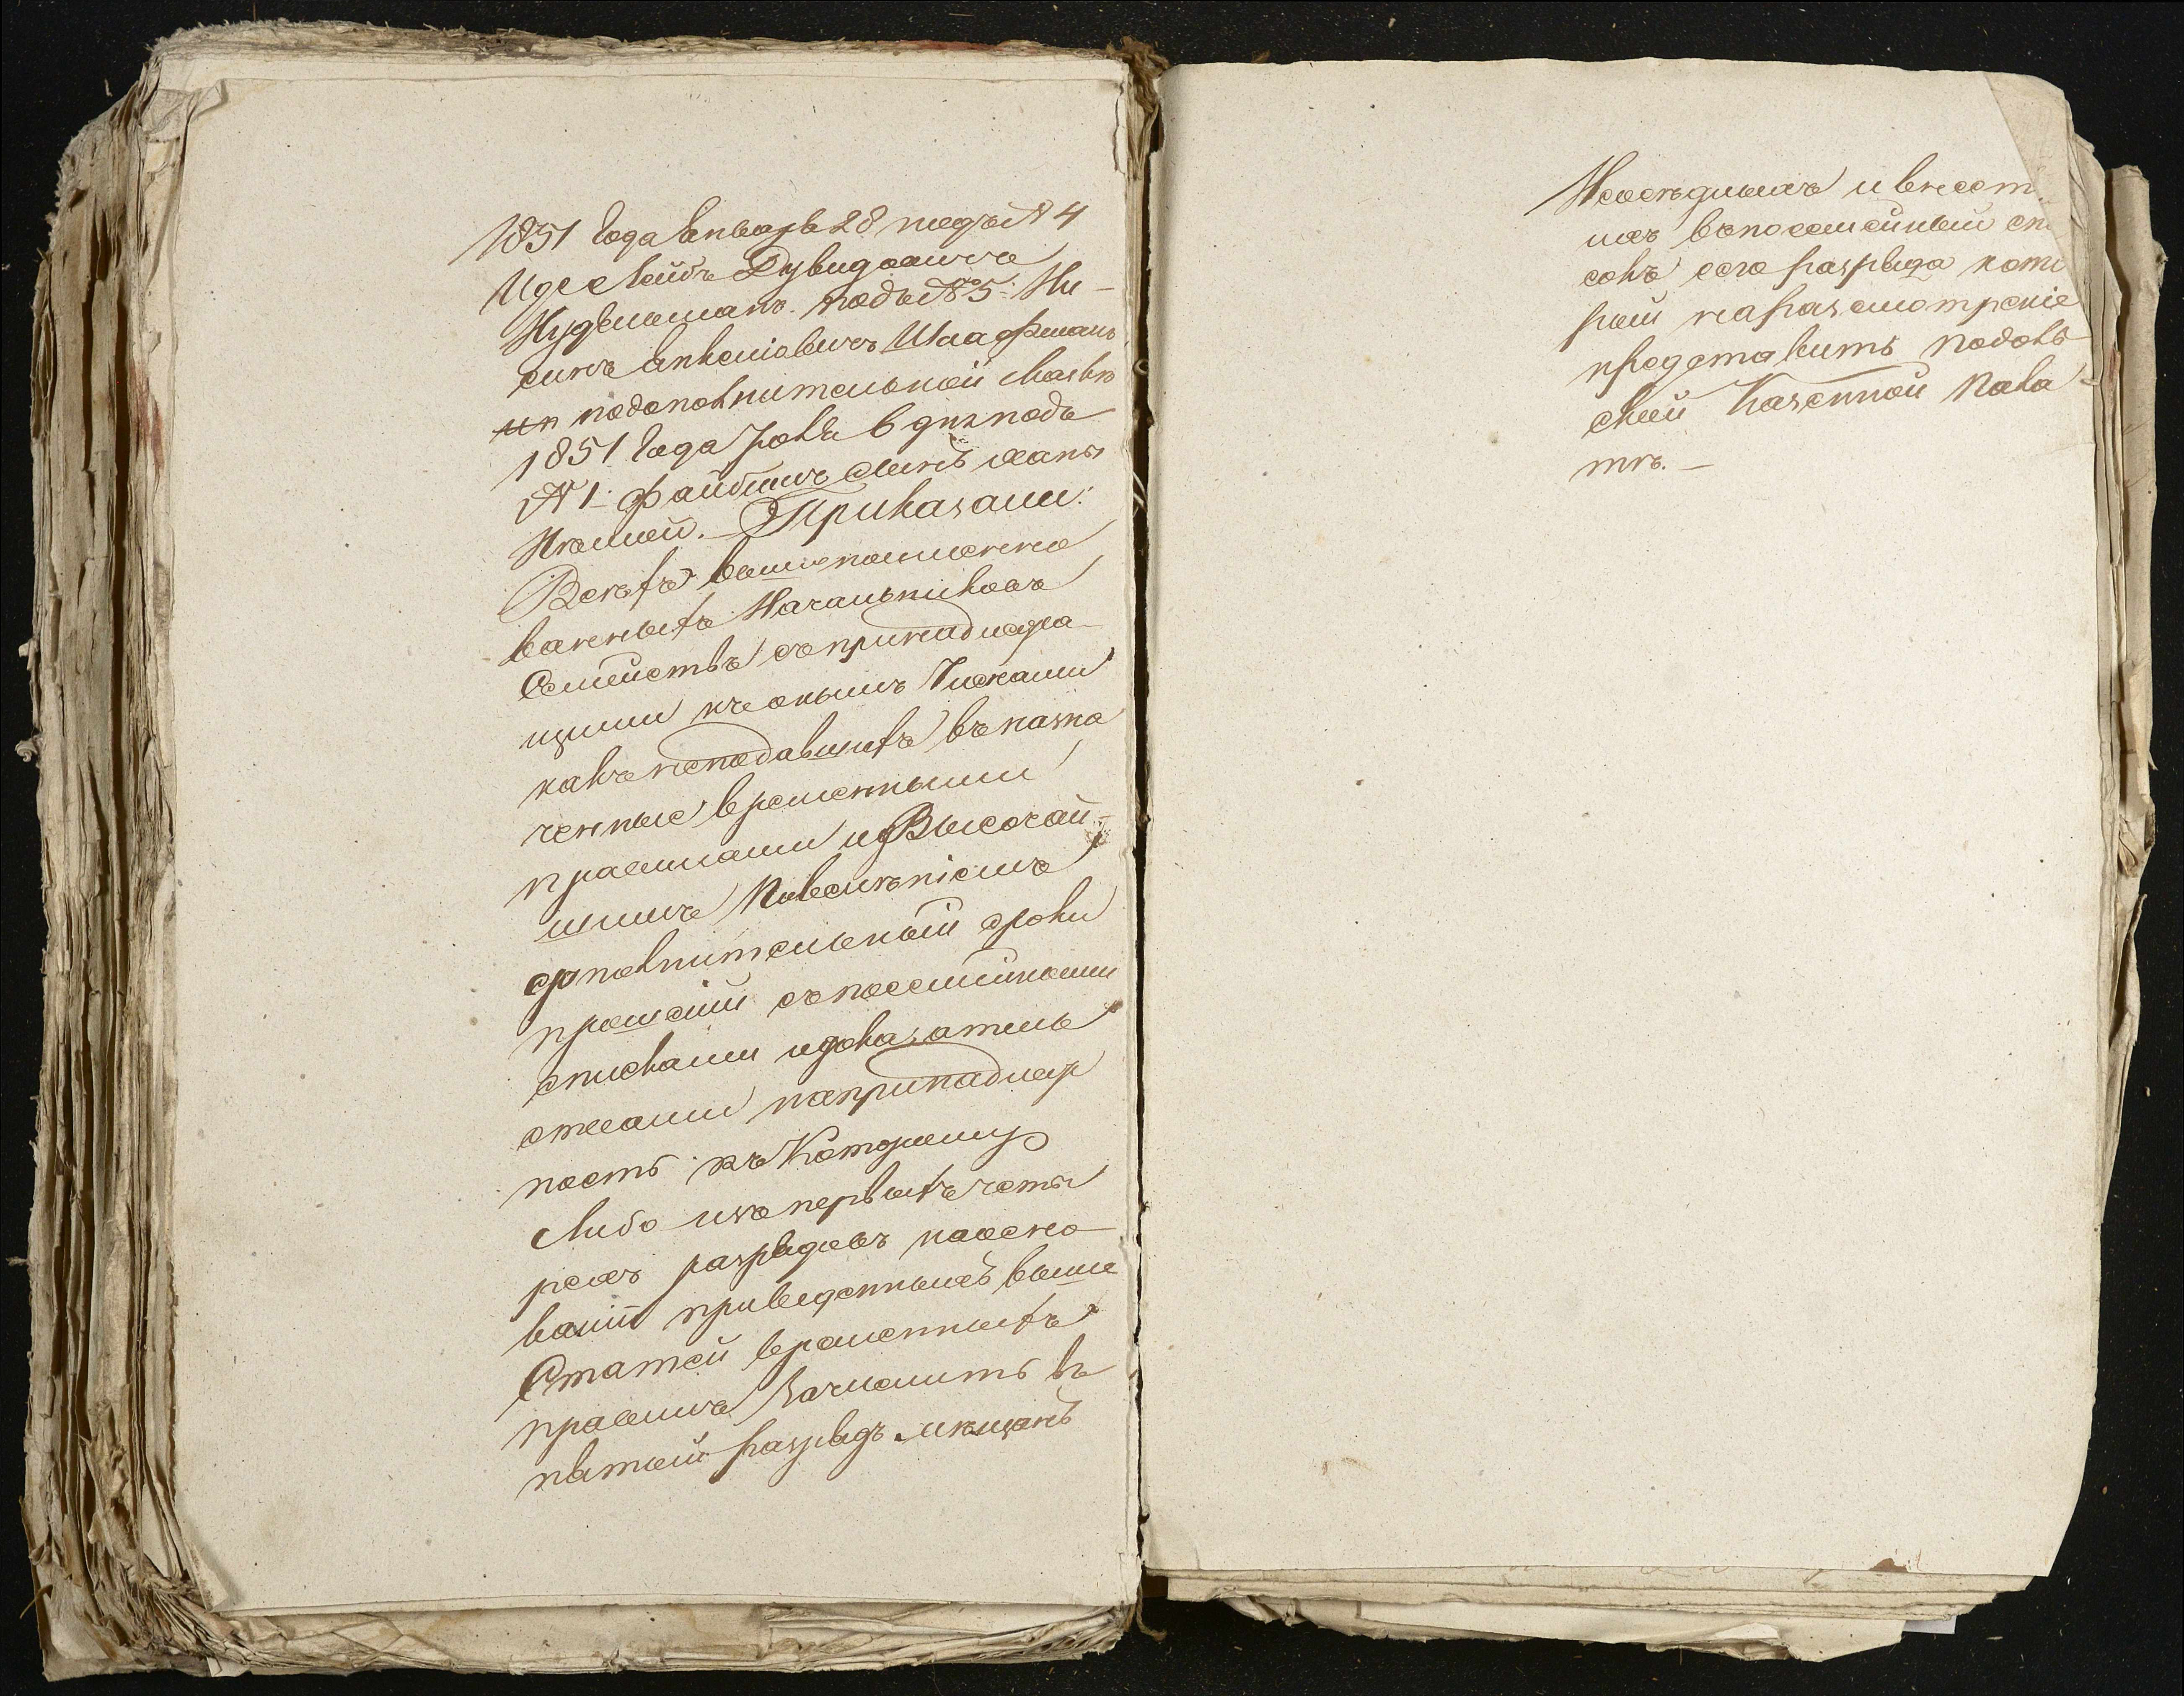 1851 года Января 28 подъ № 4
Идее Лейбъ Дувидовичъ
Нудельманъ. подъ № 5: Ни-
сонъ Анкелiовичъ Шаафманъ
подополнительной сказкѣ
1851 года Iюня 6 дня подъ
№ 1- Файбишъ
Приказали:
Всѣхъ вышепоимено
ванныхъ Начальниковъ
Семействъ съ принадлежа-
щими къ онымъ членами
какъ неподавшихъ въ назна
ченные временными
правилами и Высочай-
шимъ Повелѣнiемъ
дополнительный сроки
прошенiй съ посемейными
списками и доказатель
ствами на принадлеж
ность къ которому
Либо изъ первыхъ четы
рехъ разрядовъ на осно
ванiи приведенныхъ выше
Статей временныхъ
правилъ Зачислить въ
пятый разрядъ мѣщанъ
Неосѣдлыхъ и внести
ихъ въ посемейный спи
сокъ сего разряда кото
рый на разсмотренiе
представить Подоль
ской Казенной Пала-
тѣ.-